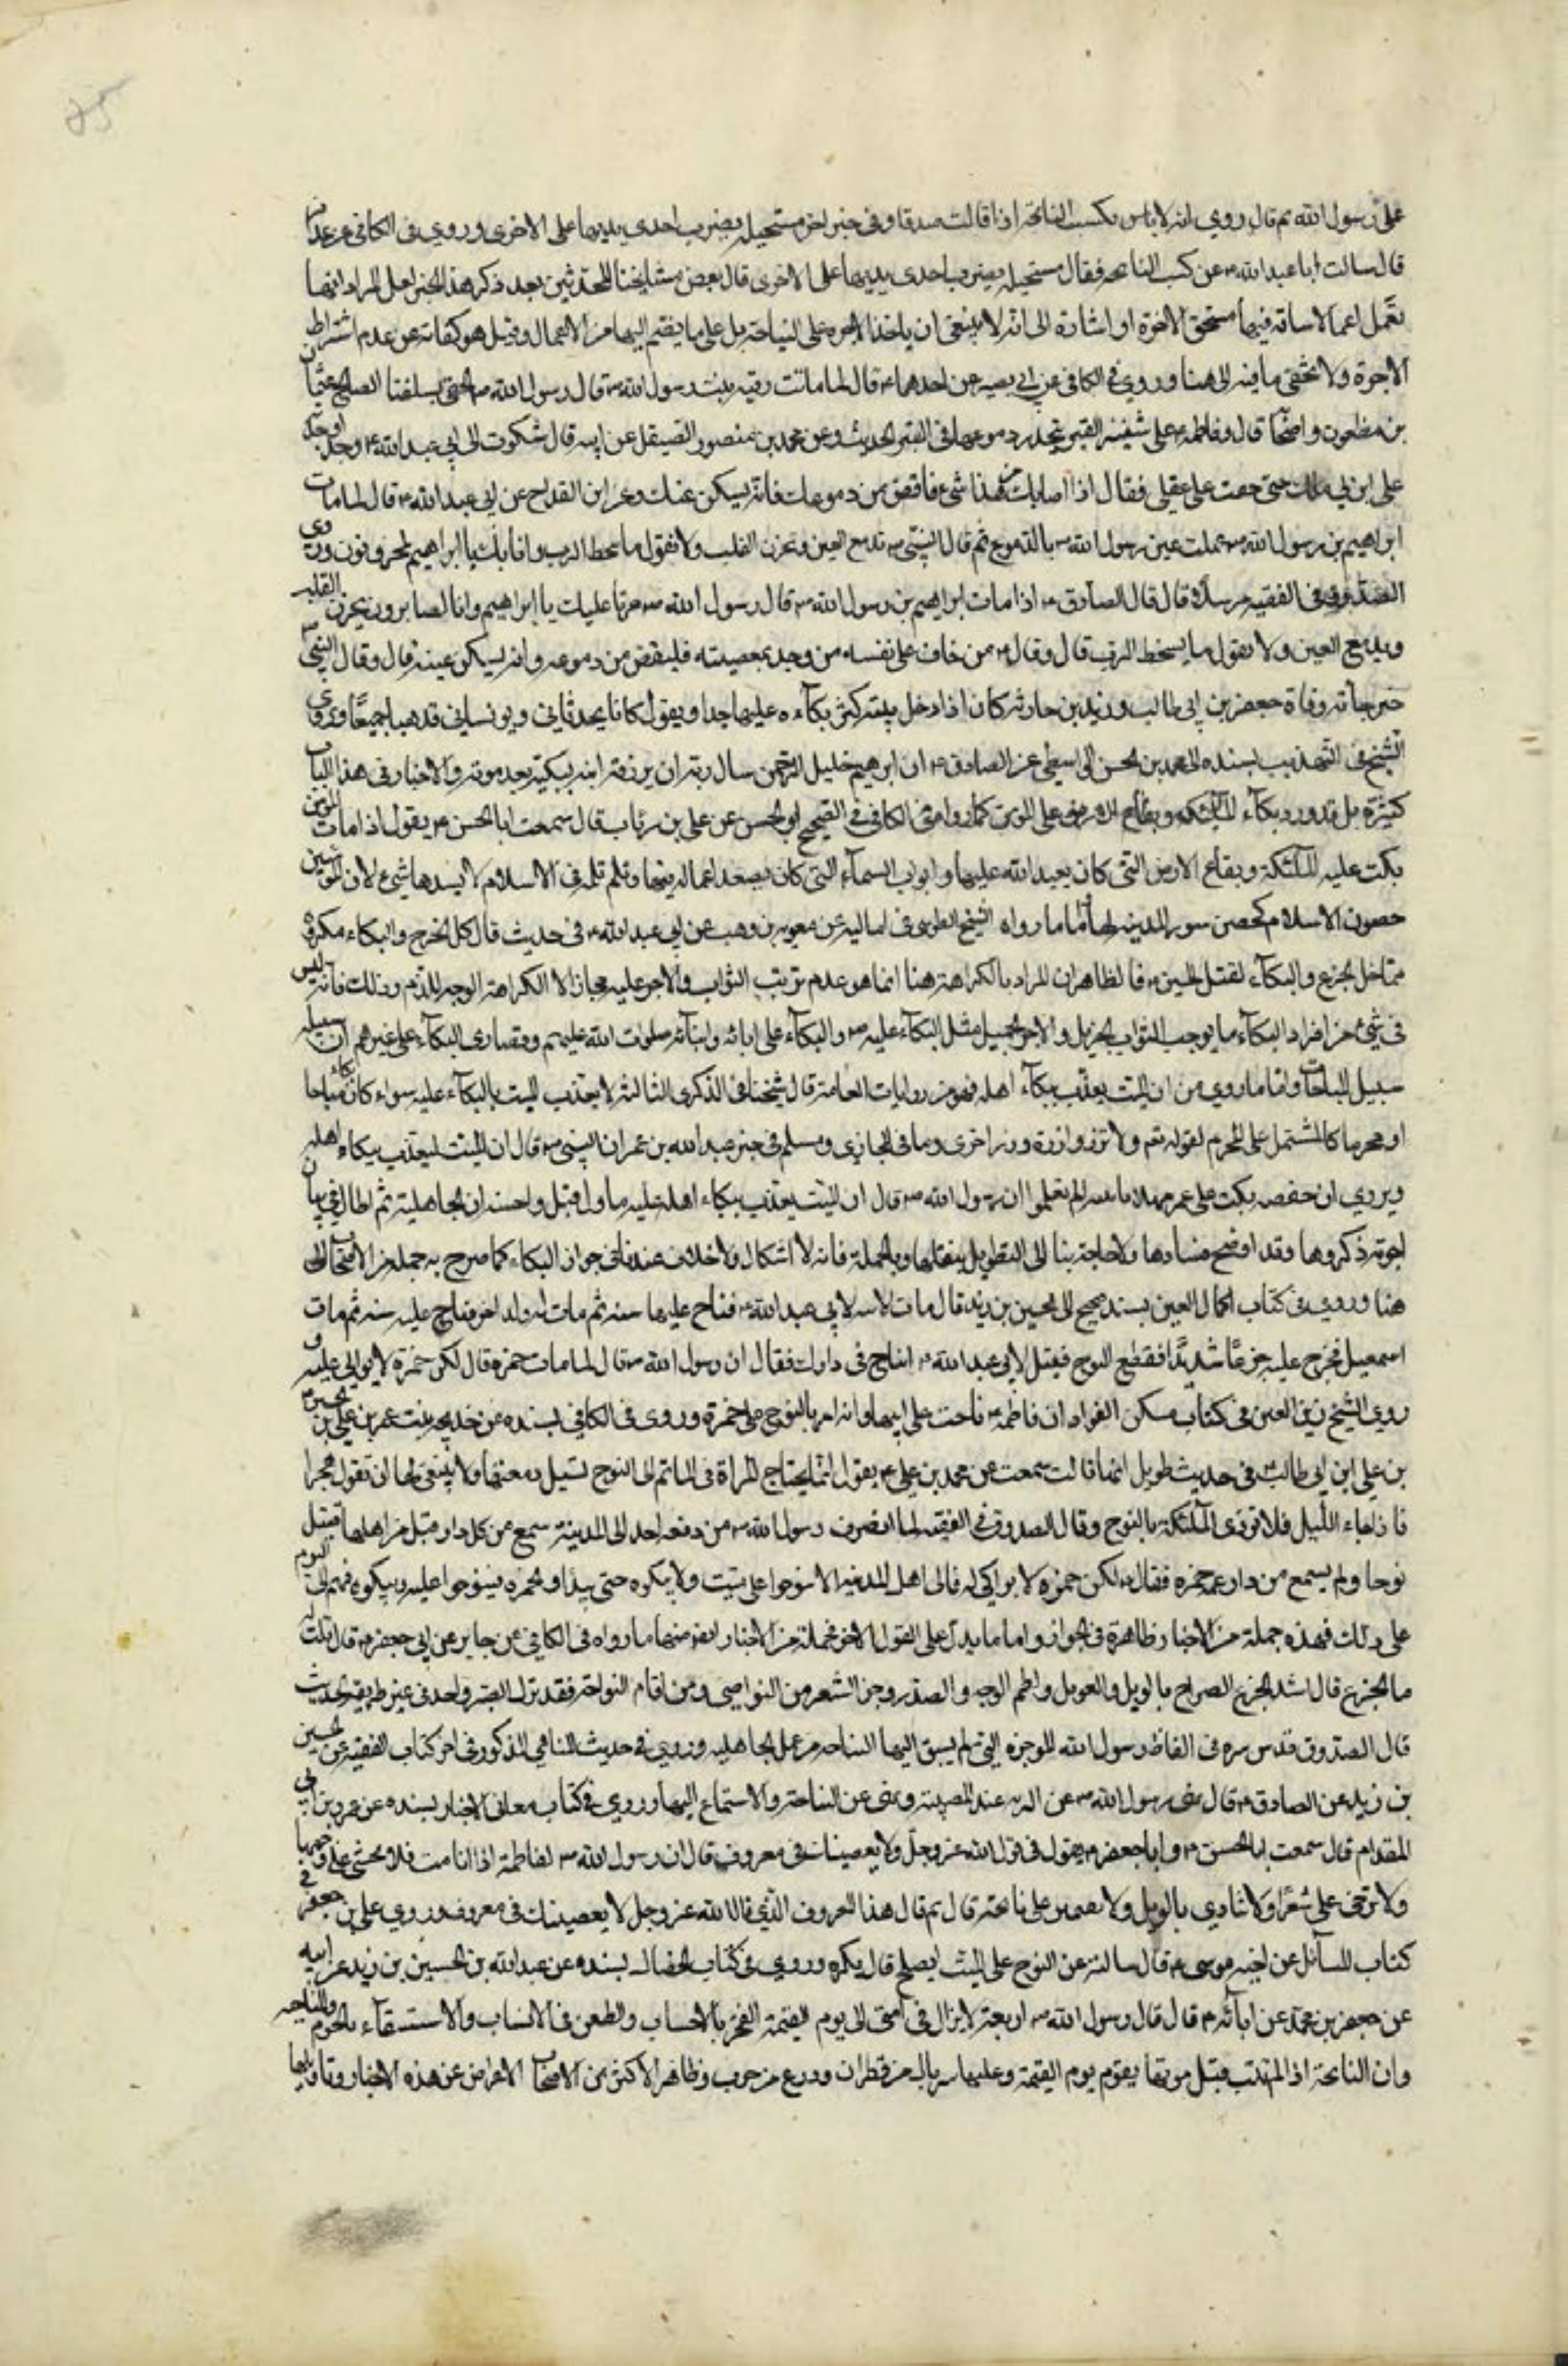 85
على رسول الله ثم قال روي انه لا باس بكسب النائحة اذا قالت صدقا وفى خبر اخر مستحيله بضرب احدى يديها على الاخرى وروى فى الكافى عن عذافر
قال سالت ابا عبد الله ع عن كسب النائحه فقال مستحيله بضرب احدى يديها على الاخرى قال بعض مشايخنا المحدثين بعد ذكر هذا الخبر لعل المراد انها
تعمل اعمالا شاقة فيها تستحق الاجرة او اشارة الى انه لا ينبغى ان ياخذ الاجره على النياحة بل على ما يضم اليها من الاعمال وقيل هو كناية عن عدم اشتراط
الاجرة ولا يخفى ما فيه الى هنا وروى فى الكافى عن ابي بصير عن احدهما ع قال لما ماتت رقيه بنت رسول الله ص قال رسول الله ص الحقى بسلفنا الصالح عثمان
بن مظعون واصحابه قال وفاطمه ع على شفير القبر تنحدر دموعها فى القبر الحديث وعن محمد بن منصور الصيقل عن ابيه قال شكوت الى ابي عبد الله ع وجدا وجدته
على ابن لي هلك حتى خفت على عقلي فقال اذا اصابك من هذا شىء فافض من دموعك فانه يسكن عنك وعن ابن القداح عن ابي عبد الله ع قال لما مات
ابراهيم بن رسول الله ص هملت عين رسول الله ص بالدموع ثم قال النبى ص تدمع العين ويحزن القلب ولا نقول ما يسخط الرب وانا بك يا ابراهيم لمحزونون وروى
الصدوق فى الفقيه مرسلا قال قال الصادق ع لما مات ابراهيم بن رسول الله ص قال رسول الله ص حزنا عليك يا ابراهيم وانا لصابرون يحزن القلب
ويدمع العين ولا نقول ما يسخط الرب قال وقال ع من خاف على نفسه من وجد بمصيبته فليفض من دموعه وانه يسكن عينه قال وقال النبى ص
حين جاءته وفاة جعفر بن ابي طالب وزيد بن حارثه كان اذا دخل بيته كثر بكآءه عليهما جدا ويقول كانا يحدثاني ويونساني فذهبا جميعا وروى
الشيخ فى التهذيب بسنده الى محمد بن الحسن الواسطى عن الصادق ع ان ابرهيم خليل الرحمن سال ربه ان يرزقه ابنه تبكيه بعد موته والاخبار فى هذا الباب
كثيرة بل قد ورد بكآء الملئكه وبقاع الارض على المؤمن كما روا فى الكافى فى الصحيح عن علي بن رئاب قال سمعت ابا الحسن ع يقول اذا مات المؤمن
بكت عليه الملئكة وبقاع الارض التى كان يعبد الله عليها وابواب السمآء التى كان يصعد اعماله فيها وثلم ثلمه فى الاسلام لا يسدها شىء لان المؤمنين
حصون الاسلام كحصن سور المدينه لها واما ما رواه الشيخ الطوسى فى اماليه عن معويه بن وهب عن ابي عبد الله ع فى حديث قال كل الجزع والبكاء مكروه
ما خلا الجزع والبكآء لقتل الحسين ع فالظاهر ان المراد بالكراهة هنا انما هو عدم ترتب الثواب والاجر عليه مجازا لا الكراهة الموجبه للذم وذلك فانه ليس
فى شىء من افراد البكآء ما يوجب الثواب الجزيل والاجر الجميل مثل البكآء عليه ع والبكآء على ابائه وابنائه صلوات الله عليهم وقصارى البكآء على غيرهم ان سبيله
سبيل المباحات واما ما روى من ان الميت يعذب ببكآء اهله فهو من روايات العامة قال شيخنا فى الذكرى الثالثه لا يعذب الميت بالبكآء عليه سواء كان بكاء مباحا
او محرما كالمشتمل على المحرم لقوله تعم ولا تزر وازرة وزر اخرى وما فى البخاري ومسلم فى خبر عبد الله بن عمر ان النبى ص قال ان الميت ليعذب ببكاء اهله
ويروى ان حفصه بكت على عمر فقال مهلا يا بنيه الم تعلمى ان رسول الله ص قال ان الميت يعذب ببكاء اهله عليه ماول قيل واحسنه ان الجاهلية ثم اطال فى بيان
اجوبة ذكروها وقد اوضح فسادها ولا حاجة بنا الى التطويل بنقلها وبالجملة فانه لا اشكال ولا خلاف عندنا فى جواز البكاء كما صرح به جملة من الاصحاب الى
هنا وروى فى كتاب اكمال الدين بسند صحيح الى الحسين بن زيد قال ماتت ابنة لابي عبد الله ع فناح عليها سنه ثم مات له ولد اخر فناح عليه سنه ثم مات
اسمعيل فجزع عليه جزعا شديدا فقطع النوح فقيل لابي عبد الله ع ايناح فى دارك فقال ان رسول الله ص قال لما مات حمزه قال لكن حمزة لا بواكى عليه
وروى الشيخ زين الدين فى كتاب مسكن الفواد ان فاطمه ع ناحت على ابيها وانه امر بالنوح على حمزة وروى فى الكافى بسنده عن خديجه بنت عمر بن علي بن الحسين
بن علي ابن ابي طالب ع فى حديث طويل انها قالت سمعت عمى محمد بن علي ع يقول انما يحتاج المراة فى الماتم الى النوح لتسيل دمعتها ولا ينبغى لها ان تقول هجرا
فاذا جاء الليل فلا تؤذى الملئكة بالنوح وقال الصدوق فى الفقيه لما انصرف رسول الله ص من وقعه احد الى المدينه سمع من كل دار قتل من اهلها قتيل
نوحا ولم يسمع من دار عمه حمزه فقال ع لكن حمزه لا بواكى له فالى اهل المدينه الا ينوحوا على ميت ولا يبكوه حتى يبداوا بحمزه فينوحوا عليه ويبكوه فهم الى اليوم
على ذلك فهذه جملة من الاخبار ظاهرة فى الجواز واما ما يدل على القول الاخر فجملة من الاخبار ايضا منها ما رواه فى الكافى عن جابر عن ابي جعفر ع قال قلت له
ما الجزع قال اشد الجزع الصراخ بالويل والعويل ولطم الوجه والصدر وجز الشعر من النواصى ومن اقام النواحة فقد ترك الصبر واخذ فى غير طريقه الحديث
قال الصدوق قدس سره فى الفاظ رسول الله الموجزه التى لم يسبق اليها النياحه من عمل الجاهليه وروى فى حديث المناهى المذكور فى اخر كتاب الفقيه عن الحسين
بن زيد عن الصادق ع قال نهى رسول الله ص عن الرنه عند المصيبة ونهى عن النياحة والاستماع اليها وروى فى كتاب معانى الاخبار بسنده عن عمرو بن ابي
المقدام قال سمعت ابا الحسن ع وابا جعفر ع يقول فى قول الله عز وجل ولا يعصينك فى معروف قال ان رسول الله ص قال لفاطمة اذا انا مت فلا تخمشى على وجها
ولا ترخى على شعرا ولا تنادى بالويل ولا تقيمن على نائحة قال ثم قال هذا المعروف الذي قال الله عز وجل لا يعصينك فى معروف وروى علي بن جعفر فى
كتاب المسائل عن اخيه موسى ع قال سالته عن النوح على الميت ايصلح قال يكره وروى فى كتاب الخصال بسنده عن عبد الله بن الحسين بن زيد عن ابيه
عن جعفر بن محمد عن ابآئه ع قال قال رسول الله ص اربعة لا يزال فى امتى الى يوم القيمة الفخر بالاحساب والطعن فى الانساب والاستسقآء بالنجوم والنياحه
وان النائحة اذا لم تتب قبل موتها يقوم يوم القيمة وعليها سربال من قطران ودرع من جرب وظاهر الاكثر من الاصحاب الاعراض عن هذه الاخبار وتاويلها